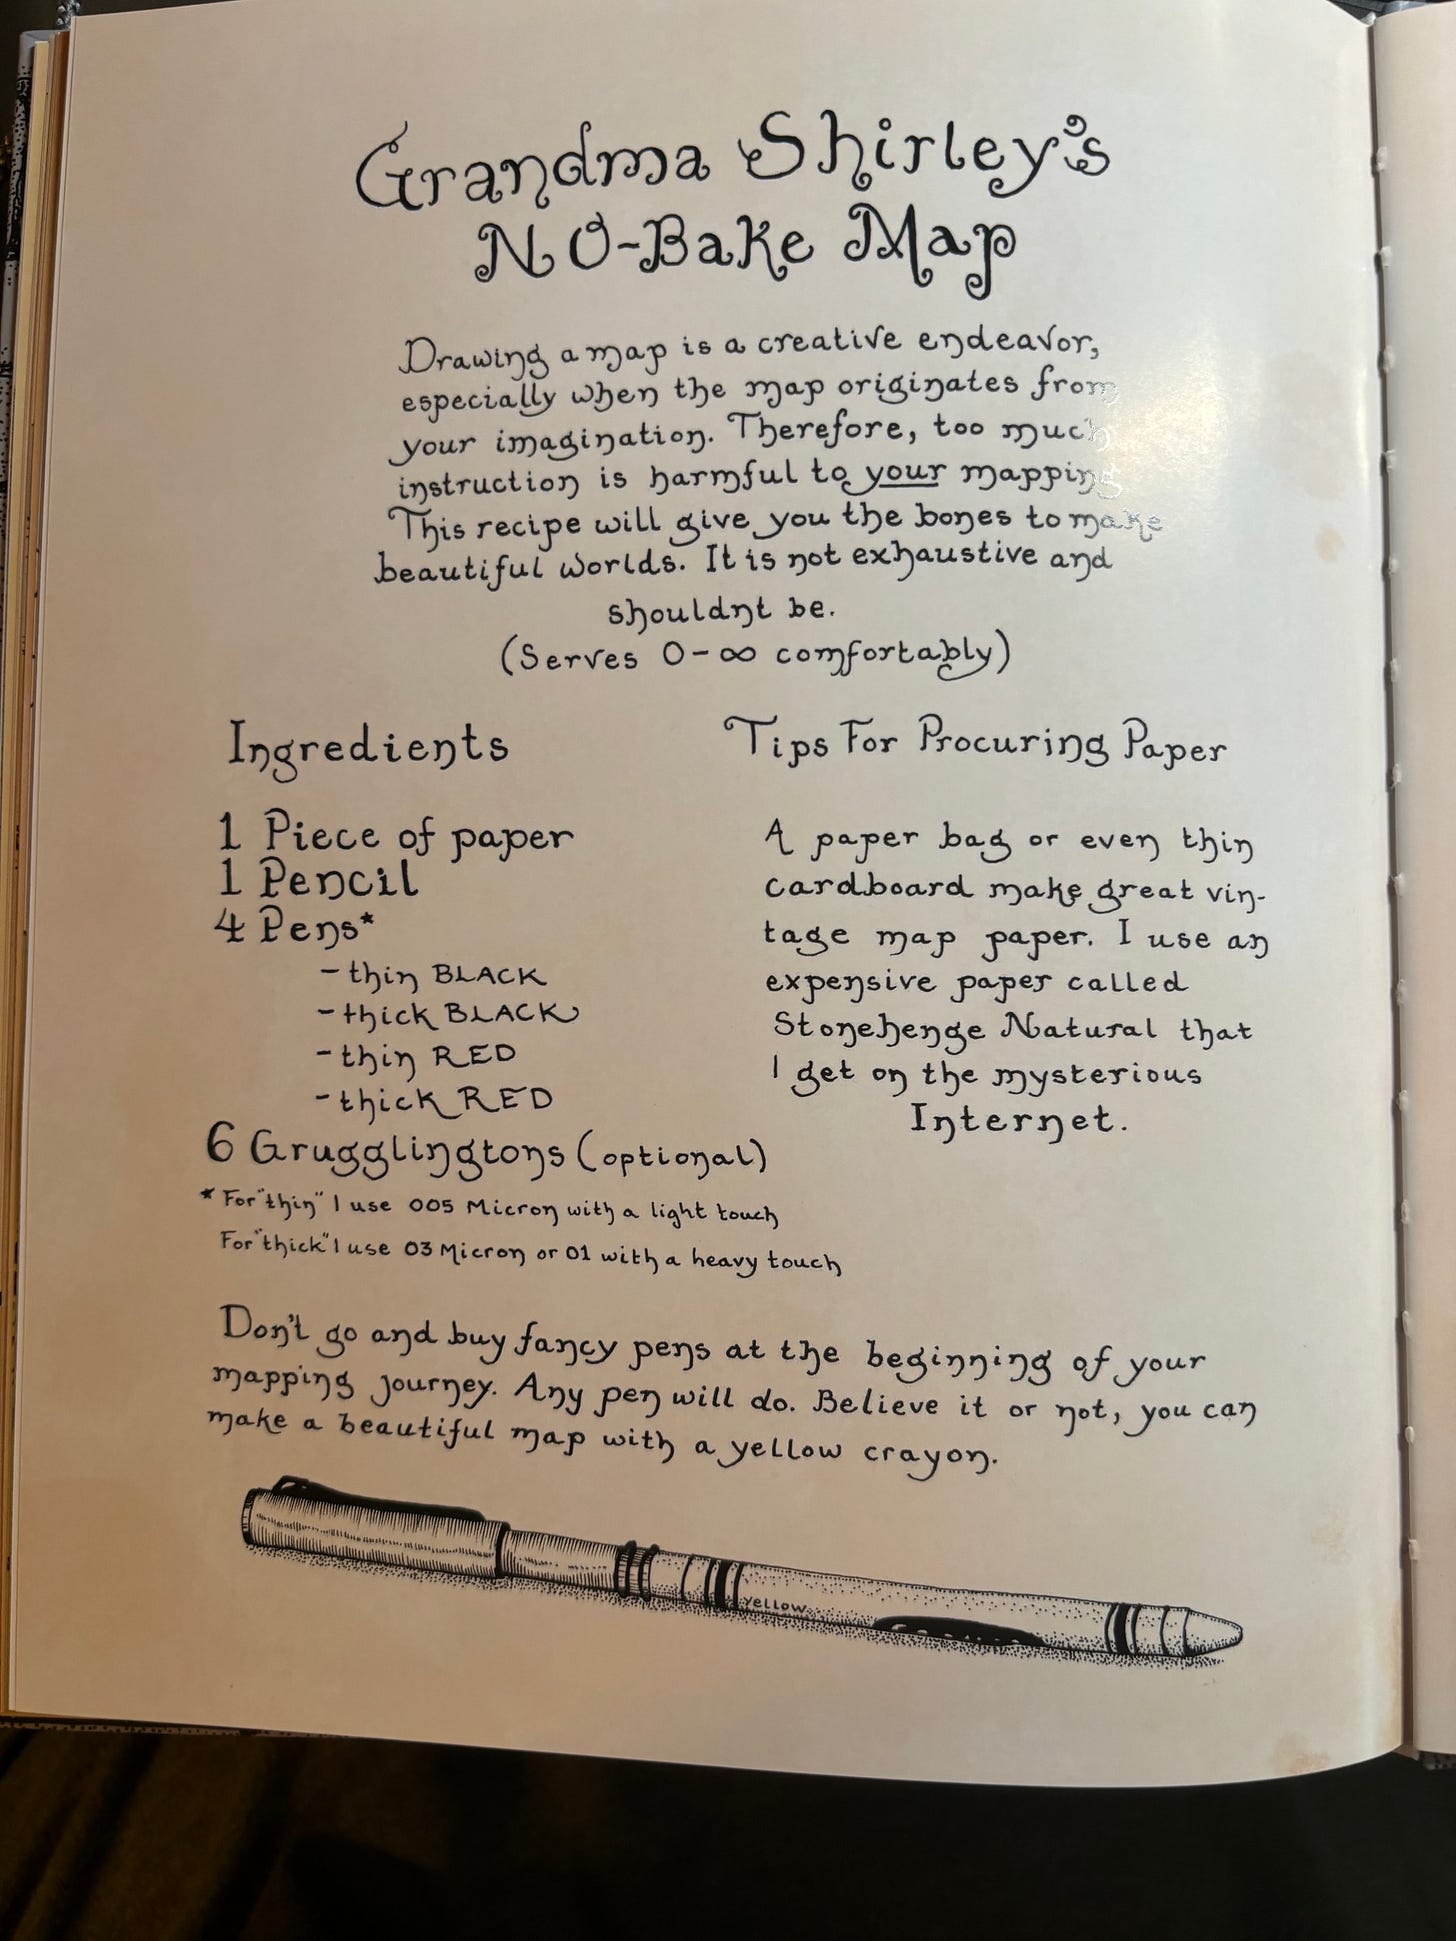 Grandma Shirley's
NO-Bake Map
Drawing a map is a creative endeavor,
especially when the map originates from
your imagination. Therefore, too much
instruction is harmful to your mapping
This recipe will give you the bones to make
beautiful worlds. It is not exhaustive and
shouldnt be.
(Serves 0-∞ comfortably)
Ingredients
1 Piece of paper
1 Pencil
4 Pens*
- thin BLACK
- thick BLACK
- thin RED
- thick RED
6 Grugglingtons (optional)
* For "thin" I use 005 Micron with a light touch
For "thick" I use 03 Micron or 01 with a heavy touch
Tips For Procuring Paper
A paper bag or even thin
cardboard make great vin-
tage map paper. I use an
expensive paper called
Stonehenge Natural that
I get on the mysterious
Internet.
Don't go and buy fancy pens at the beginning of your
mapping journey. Any pen will do. Believe it or not, you can
make a beautiful map with a yellow crayon.
yellow